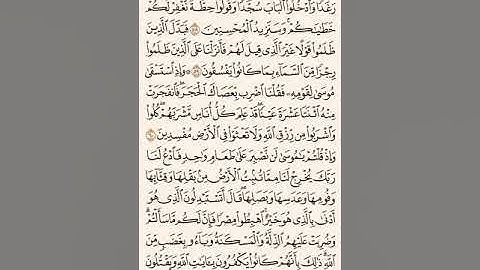 رَغَدًا وَادْخُلُوا الْبَابَ سُجَّدًا وَقُولُوا حِطَّةٌ نَّغْفِرْ لَكُمْ
خَطَايَاكُمْ وَسَنَزِيدُ الْمُحْسِنِينَ ٥٨ فَبَدَّلَ الَّذِينَ
ظَلَمُوا قَوْلًا غَيْرَ الَّذِي قِيلَ لَهُمْ فَأَنزَلْنَا عَلَى الَّذِينَ ظَلَمُوا
رِجْزًا مِّنَ السَّمَاءِ بِمَا كَانُوا يَفْسُقُونَ ٥٩ وَإِذِ اسْتَسْقَىٰ
مُوسَىٰ لِقَوْمِهِ فَقُلْنَا اضْرِب بِّعَصَاكَ الْحَجَرَ فَانفَجَرَتْ
مِنْهُ اثْنَتَا عَشْرَةَ عَيْنًا قَدْ عَلِمَ كُلُّ أُنَاسٍ مَّشْرَبَهُمْ كُلُوا
وَاشْرَبُوا مِن رِّزْقِ اللَّهِ وَلَا تَعْثَوْا فِي الْأَرْضِ مُفْسِدِينَ ٦٠
وَإِذْ قُلْتُمْ يَا مُوسَىٰ لَن نَّصْبِرَ عَلَىٰ طَعَامٍ وَاحِدٍ فَادْعُ لَنَا
رَبَّكَ يُخْرِجْ لَنَا مِمَّا تُنبِتُ الْأَرْضُ مِن بَقْلِهَا وَقِثَّائِهَا
وَفُومِهَا وَعَدَسِهَا وَبَصَلِهَا قَالَ أَتَسْتَبْدِلُونَ الَّذِي هُوَ
أَدْنَىٰ بِالَّذِي هُوَ خَيْرٌ اهْبِطُوا مِصْرًا فَإِنَّ لَكُم مَّا سَأَلْتُمْ
وَضُرِبَتْ عَلَيْهِمُ الذِّلَّةُ وَالْمَسْكَنَةُ وَبَاءُوا بِغَضَبٍ مِّنَ
اللَّهِ ذَٰلِكَ بِأَنَّهُمْ كَانُوا يَكْفُرُونَ بِآيَاتِ اللَّهِ وَيَقْتُلُونَ